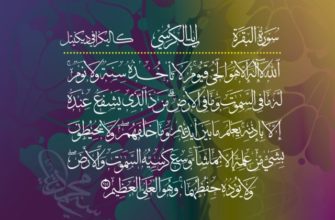 سورة البقرة آية الكرسي
الله لا إله إلا هو الحي القيوم لا تأخذه سنة ولا نوم
له ما في السموت وما في الأرض من ذا الذي يشفع عنده
إلا بإذنه يعلم ما بين أيديهم وما خلفهم ولا يحيطون
بشيء من علمه إلا ما شاء وسع كرسيه السموت والأرض
ولا يؤده حفظهما وهو العلي العظيم